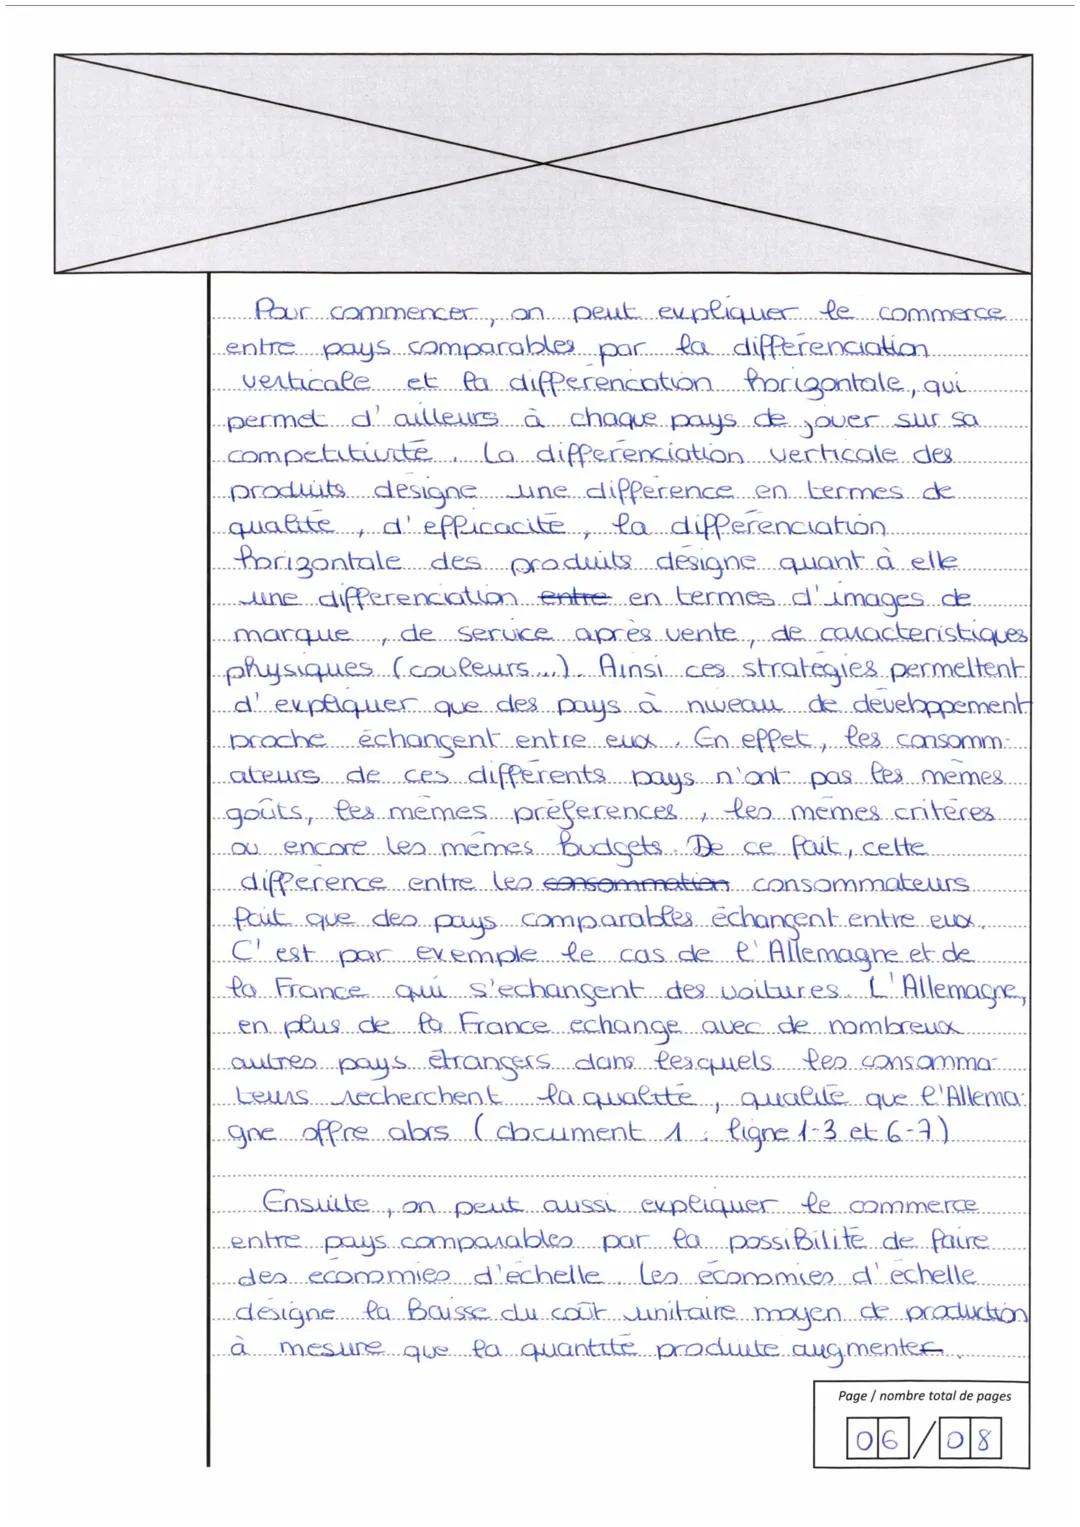 Pour commencer, on peut expliquer le commerce
entre pays comparables par la différenciation
verticale et la différenciation horizontale, qui
permet d'ailleurs à chaque pays de jouer sur sa
compétitivité. La différenciation verticale des
produits désigne une différence en termes de
qualité, d'efficacité, la différenciation
horizontale des produits désigne quant à elle
une différenciation entre en termes d'images de
marque, de service après vente, de caractéristiques
physiques (couleurs...). Ainsi ces stratégies permettent
d'expliquer que des pays à niveau de développement
proche échangent entre eux. En effet, les consomm-
ateurs de ces différents pays n'ont pas les mêmes
goûts, les mêmes préférences, les mêmes critères
ou encore les mêmes Budgets. De ce fait, cette
différence entre les consommation consommateurs
fait que des pays comparables échangent entre eux.
C'est par exemple le cas de l'Allemagne et de
la France qui s'échangent des voitures. L'Allemagne,
en plus de la France échange avec de nombreux
autres pays étrangers dans lesquels les consomma-
teurs recherchent la qualité, qualité que l'Allema-
gne offre alors (document 1 : ligne 1-3 et 6-7)
Ensuite, on peut aussi expliquer le commerce
entre pays comparables par la possibilité de faire
des économies d'échelle. Les économies d'échelle
désigne la Baisse du coût unitaire moyen de production
à mesure que la quantité produite augmenter.
Page / nombre total de pages
06 / 08